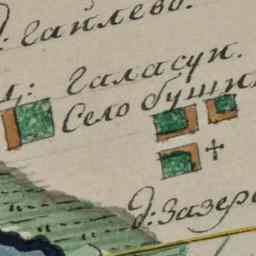 д: Гайлево.
д: Галасун.
Село бушн
д: Зазер